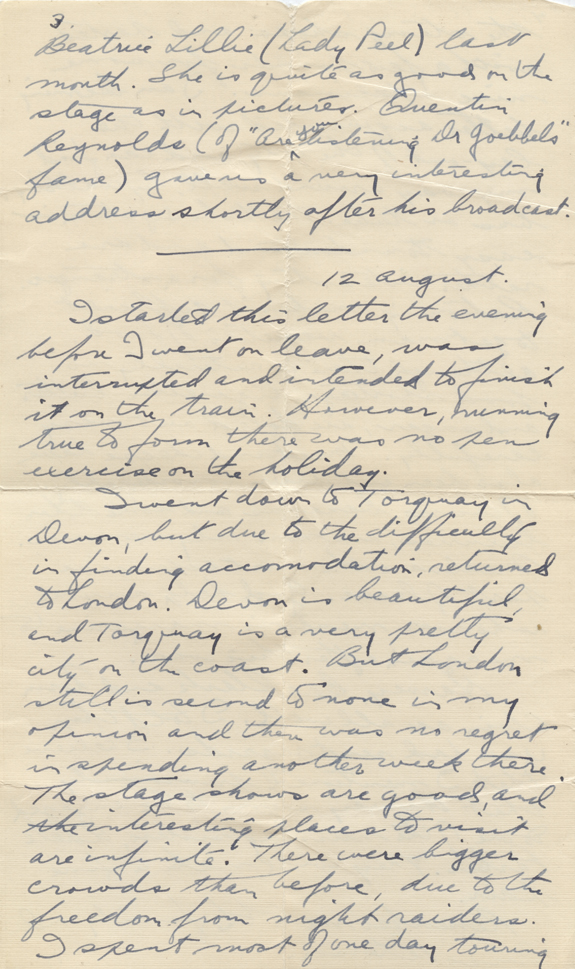 3
Beatrice Lillie (Lady Peel) last
month. She is quite as good on the
stage as in pictures. Quentin
Reynolds (of "Are you listening Dr Goebbels"
fame) gave us a very interesting
address shortly after his broadcast.
12 August.
I started this letter the evening
before I went on leave, was
interrupted and intended to finish
it on the train. However, running
true to form there was no pen
exercise on the holiday.
I went down to Torquay in
Devon, but due to the difficulty
in finding accomodation, returned
to London. Devon is beautiful,
and Torquay is a very pretty
city on the coast. But London
still is second to none in my
opinion and there was no regret
in spending another week there
The stage shows are good, and
the interesting places to visit
are infinite. There were bigger
crowds than before, due to the
freedom from night raiders.
I spent most of one day touring